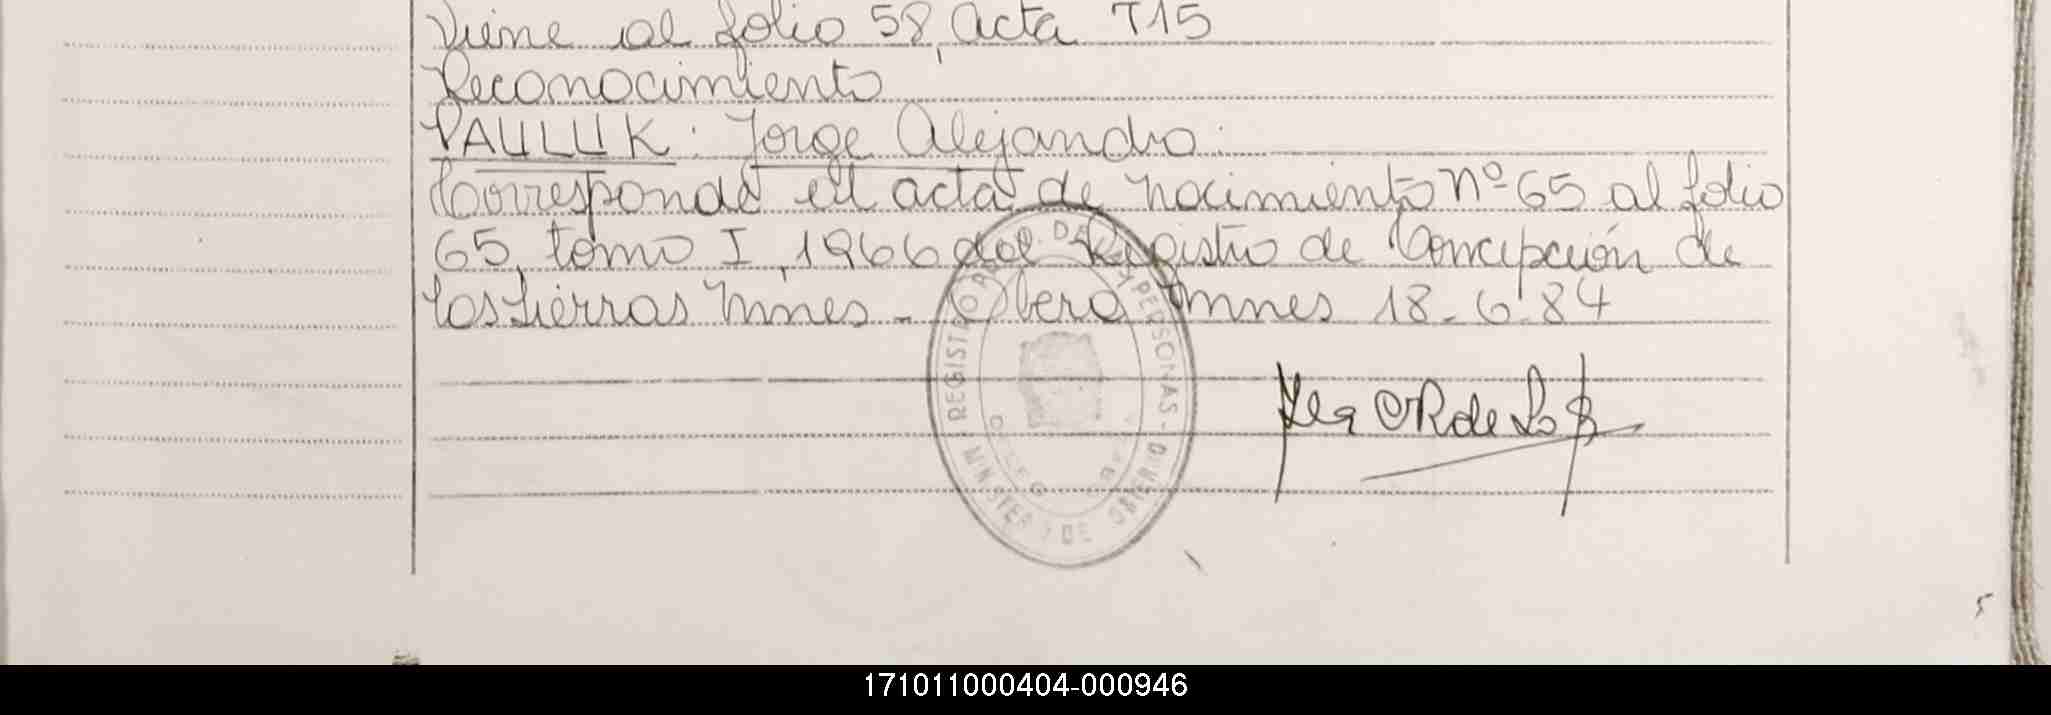 Viene al folio 58, acta T15
Reconocimiento
PAULUK: Jorge Alejandro.
Corresponde el acta de nacimiento Nº 65 al folio
65, tomo I, 1966 del Registro de Concepción de
las Sierras Mnes - Oberá, Mnes 18-6-84
REGISTRO DE LAS PERSONAS
5
171011000404-000946